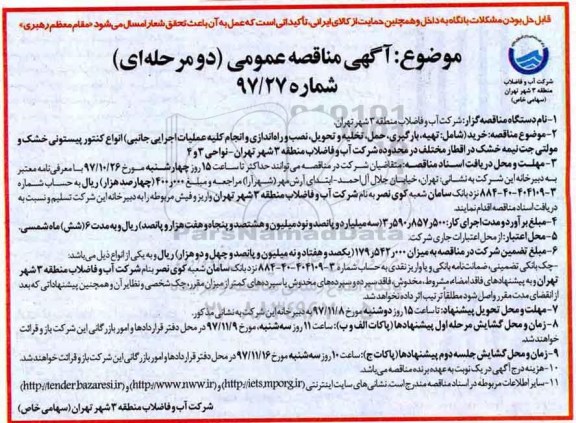 قابل حل بودن مشکلات با نگاه به داخل و همچنین حمایت از کالای ایرانی، تأکیداتی است که عمل به آن باعث تحقق شعار امسال می‌شود «مقام معظم رهبری»
موضوع: آگهی مناقصه عمومی (دو مرحله‌ای)
شماره ۹۷/۲۷
شرکت آب و فاضلاب
منطقه ۳ شهر تهران
(سهامی خاص)
۱-نام دستگاه مناقصه‌گزار: شرکت آب و فاضلاب منطقه ۳ شهر تهران
۲-موضوع مناقصه: خرید (شامل: تهیه، بارگیری، حمل، تخلیه و تحویل، نصب و راه‌اندازی و انجام کلیه عملیات اجرایی جانبی) انواع کنتور پیستونی خشک و
مولتی جت نیمه خشک در اقطار مختلف در محدوده شرکت آب و فاضلاب منطقه ۳ شهر تهران-نواحی ۳ و ۴
۳-مهلت و محل دریافت اسناد مناقصه: متقاضیان شرکت در مناقصه می‌توانند حداکثر تا ساعت ۱۵ روز چهارشنبه مورخ ۹۷/۱۰/۲۶ با معرفی‌نامه معتبر
به دبیرخانه این شرکت به نشانی: تهران، خیابان جلال آل احمد-ابتدای آرش مهر (شهرآرا) مراجعه و مبلغ ۴۰۰٫۰۰۰ (چهارصد هزار) ریال به حساب شماره
۳-۴۰۴۱۰۹-۴۰-۸۸۴ نزد بانک سامان شعبه گوی نصر به نام شرکت آب و فاضلاب منطقه ۳ شهر تهران واریز و فیش مربوطه را به دبیرخانه این شرکت تسلیم و نسبت به
دریافت اسناد مناقصه اقدام نمایند.
۴-مبلغ برآورد و مدت اجرای کار: ۳٫۰۹۰٫۸۵۷٫۵۰۰ (سه میلیارد و نود میلیون و هشتصد و پنجاه و هفت هزار و پانصد) ریال و به مدت ۶ (شش) ماه شمسی.
۵-محل اعتبار: از محل اعتبارات جاری شرکت.
۶-مبلغ تضمین شرکت در مناقصه به میزان ۱۷۹٫۵۴۲٫۰۰۰ (یکصد و هفتاد و نه میلیون و پانصد و چهل و دو هزار) ریال و به یکی از انواع ذیل می‌باشد:
-چک بانکی تضمینی، ضمانت‌نامه بانکی و یا واریز نقدی به حساب شماره ۳-۴۰۴۱۰۹-۴۰-۸۸۴ نزد بانک سامان شعبه کوی نصر بنام شرکت آب و فاضلاب منطقه ۳ شهر
تهران و به پیشنهادهای فاقد امضاء، مشروط، مخدوش، فاقد سپرده و سپرده‌های مخدوش یا سپرده‌های کمتر از میزان مقرر، چک شخصی و نظایر آن و همچنین پیشنهاداتی که بعد
از انقضای مدت مقرر واصل شود مطلقاً ترتیب اثر داده نخواهد شد.
۷-مهلت و محل تحویل پیشنهاد: تا ساعت ۱۵ روز دوشنبه مورخ ۹۷/۱۱/۸ به دبیرخانه این شرکت به نشانی مذکور.
۸-زمان و محل گشایش مرحله اول پیشنهادها (پاکات الف و ب): ساعت ۱۱ روز سه‌شنبه، مورخ ۹۷/۱۱/۹ در محل دفتر قراردادها و امور بازرگانی این شرکت باز و قرائت
خواهند شد.
۹-زمان و محل گشایش جلسه دوم پیشنهادها (پاکات ج): ساعت ۱۰ روز سه‌شنبه مورخ ۹۷/۱۱/۱۶ در محل دفتر قراردادها و امور بازرگانی این شرکت باز و قرائت خواهند شد.
۱۰-هزینه درج آگهی در یک نوبت به عهده برنده مناقصه می‌باشد.
۱۱-سایر اطلاعات مربوطه در اسناد مناقصه مندرج است. نشانی‌های سایت اینترنتی (http://iets.mporg.ir) و (http://www.nww.ir) و (http://tender.bazaresi.ir)
شرکت آب و فاضلاب منطقه ۳ شهر تهران (سهامی خاص)
ParsNamadData